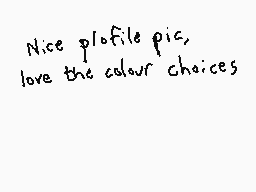 Nice plofile pic,
love the colour choices